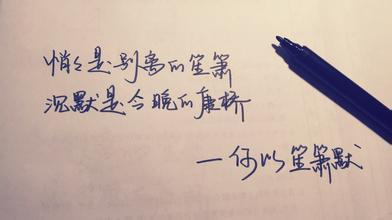 悄々是别离的笙箫
沉默是今晚的康桥
一何以笙箫默